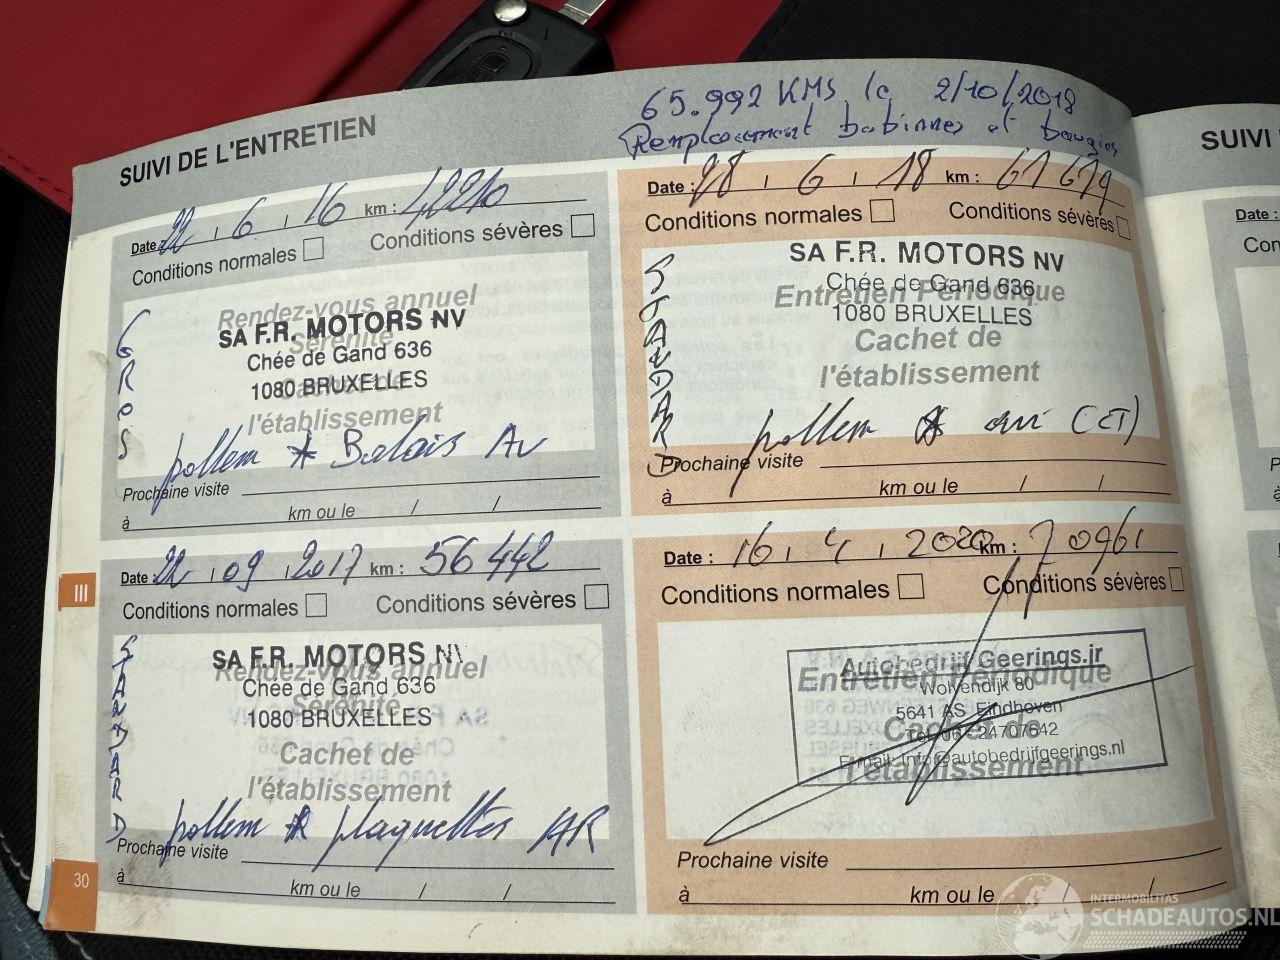 SUIVI DE L'ENTRETIEN
65.992 KMS le 2/10/2018
Remplacement bobinnes et bougies
Date : 22 , 6 , 16 km : 42210
Conditions normales Conditions sévères
Rendez-vous annuel
Sérénité
SA F.R. MOTORS NV
Chée de Gand 636
1080 BRUXELLES
Cachet de
l'établissement
GROS
pollem * Balais Av
Prochaine visite
à km ou le / /
Date : 28 , 6 , 18 km : 61679
Conditions normales Conditions sévères
SA F.R. MOTORS NV
Chée de Gand 636
1080 BRUXELLES
Entretien Périodique
Cachet de
l'établissement
STANDARD
pollem * (CT)
Prochaine visite
à km ou le / /
Date : 22 , 09 , 2017 km : 56442
Conditions normales Conditions sévères
SA F.R. MOTORS NV
Chée de Gand 636
1080 BRUXELLES
Rendez-vous annuel
Sérénité
Cachet de
l'établissement
STANDARD
pollem * plaquettes AR
Prochaine visite
à km ou le / /
Date : 16 , 4 , 2020 km : 70961
Conditions normales Conditions sévères
Autobedrijf Geerings.jr
Wolvendijk 80
5641 AS Eindhoven
Tel: 06 - 24707642
E-mail: info@autobedrijfgeerings.nl
Entretien Périodique
Cachet de
l'établissement
Prochaine visite
à km ou le /
III
30
SUIVI
Date :
INTERMOBILITAS
SCHADEAUTOS.NL